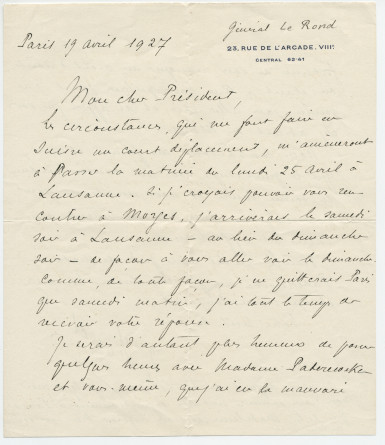 Général Le Rond
Paris 19 avril 1927
23, RUE DE L'ARCADE. VIIIᵉ
CENTRAL 62-61
Mon cher Président,
Les circonstances, qui me font faire en
Suisse un court déplacement, m'amèneront
à passer la matinée du lundi 25 avril à
Lausanne. Si je croyais pouvoir vous ren-
contrer à Morges, j'arriverais le samedi
soir à Lausanne - au lieu du dimanche
soir - de façon à vous aller voir le dimanche.
Comme, de toute façon, je ne quitterais Paris
que samedi matin, j'ai tout le temps de
recevoir votre réponse.
Je serais d'autant plus heureux de passer
quelques heures avec Madame Paderewska
et vous-même, que j'ai eu la mauvaise